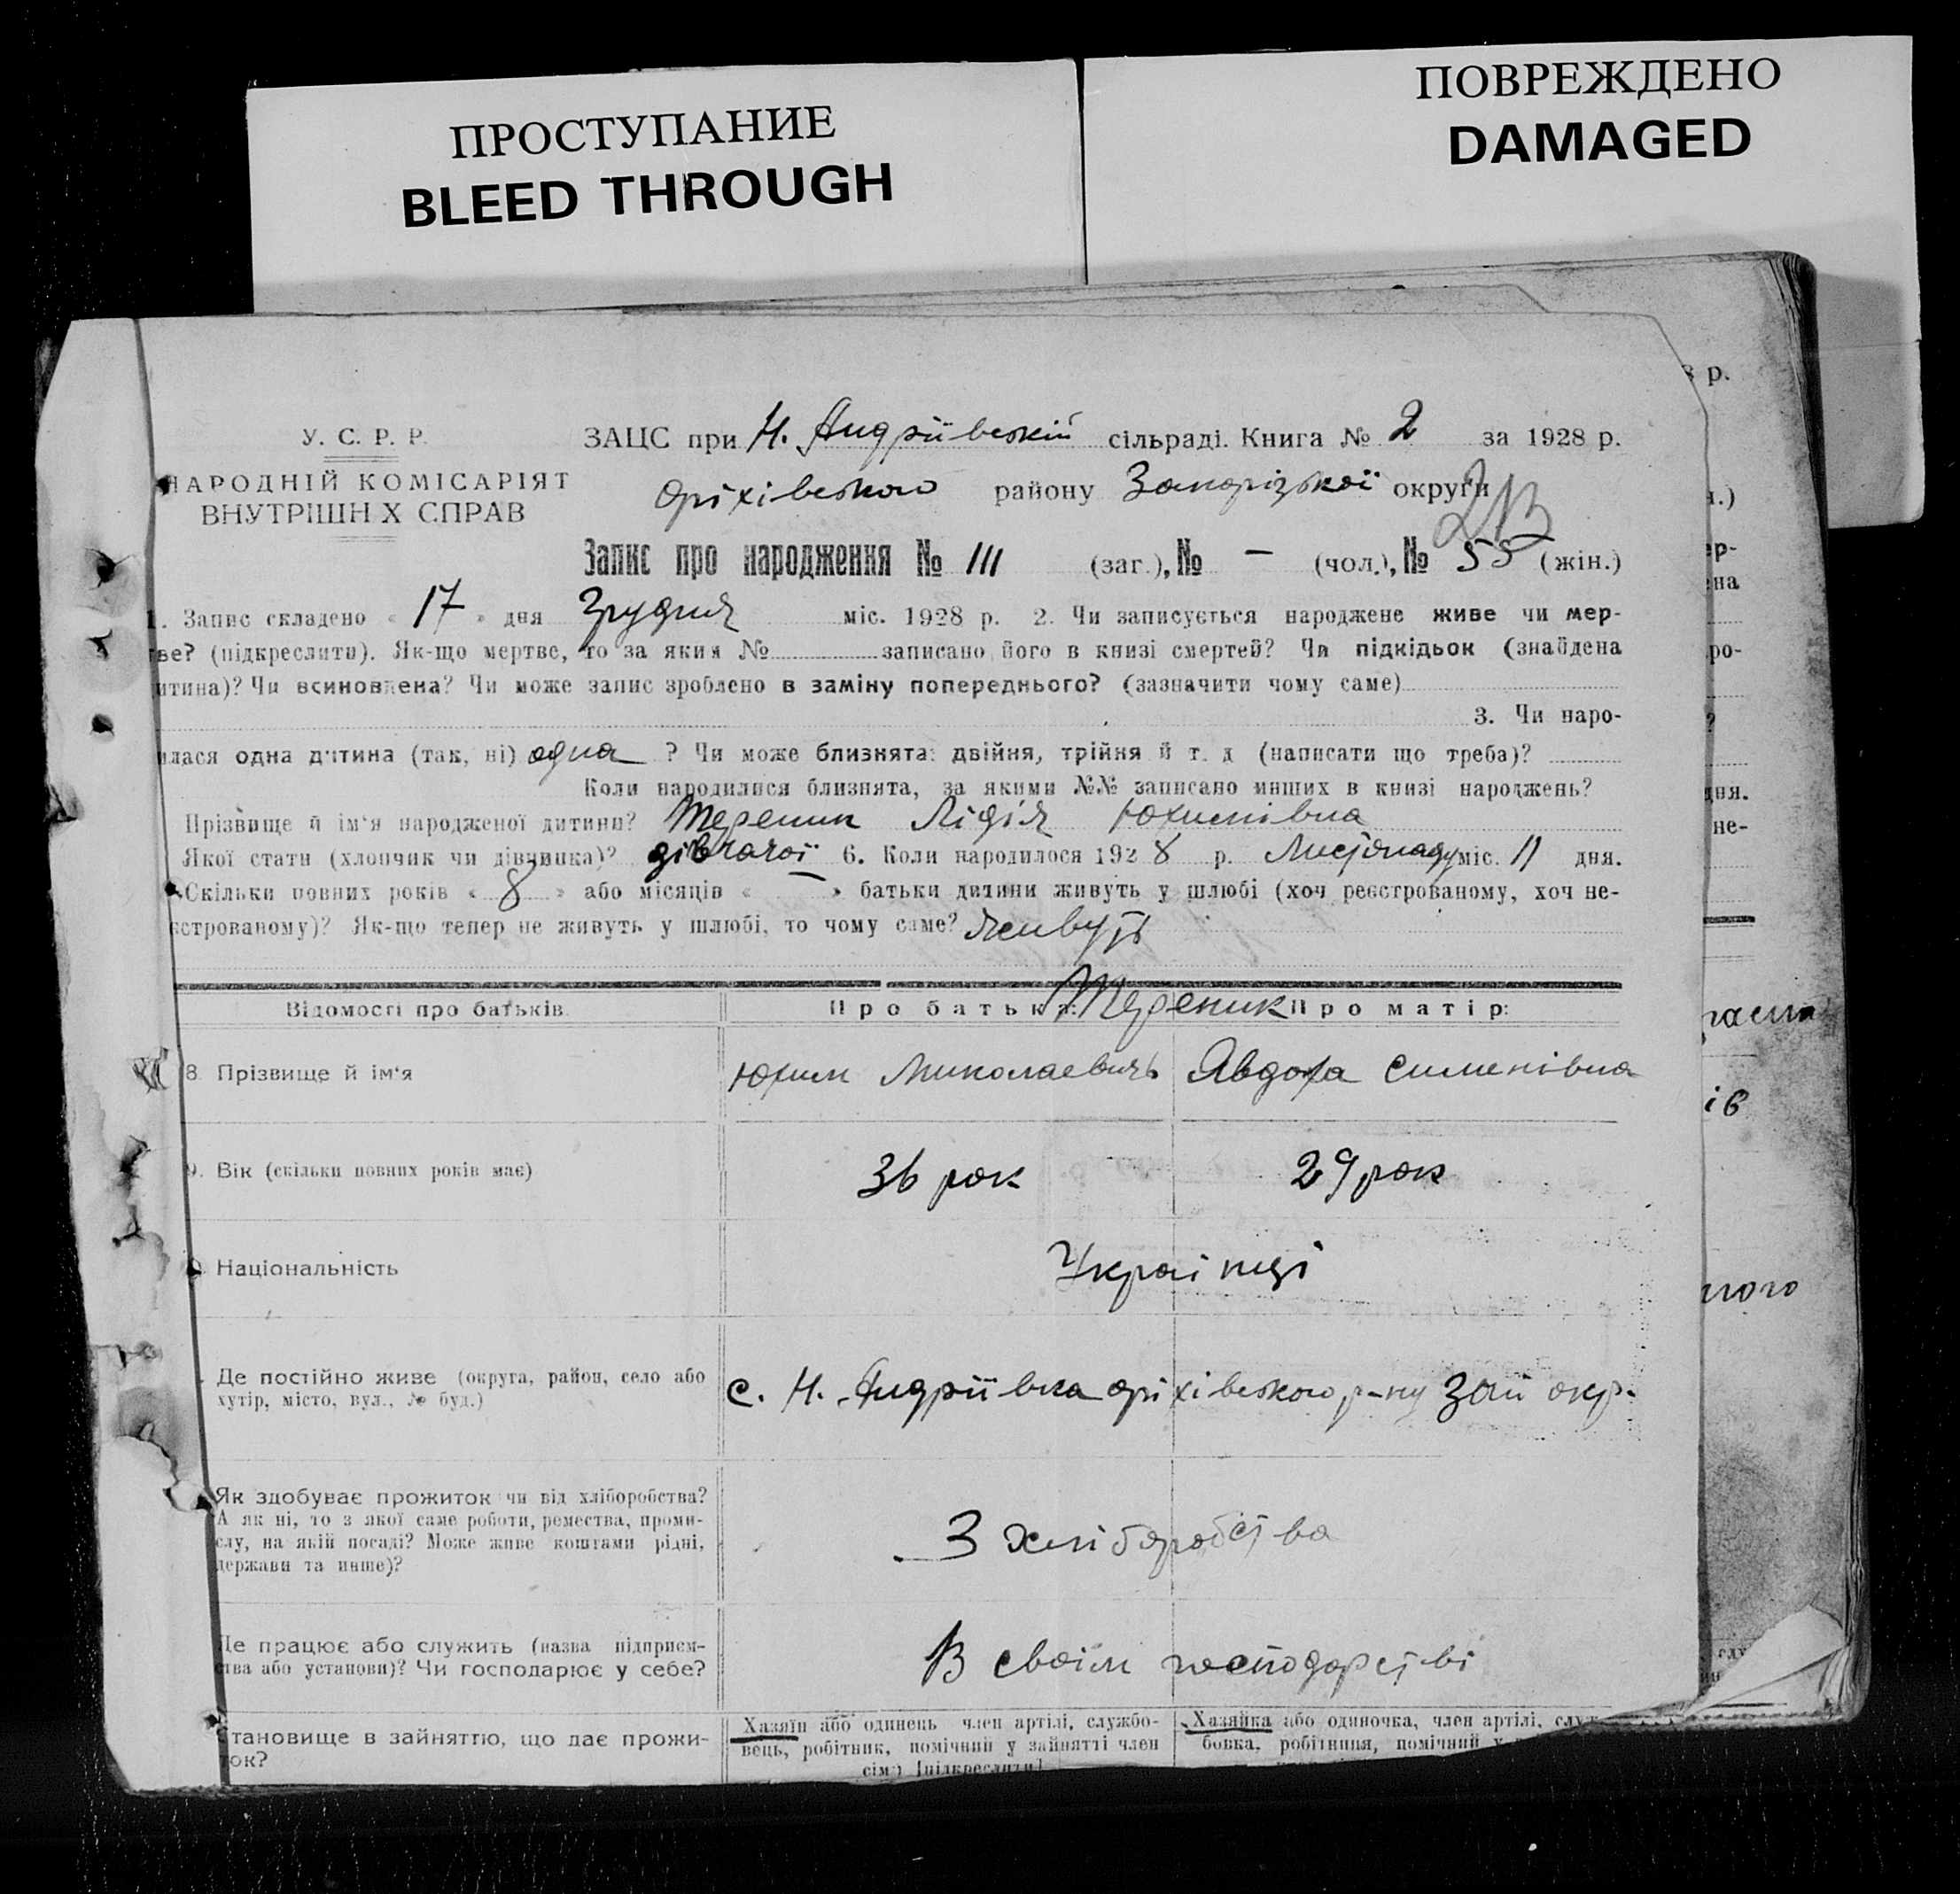 ПРОСТУПАНИЕ
BLEED THROUGH
ПОВРЕЖДЕНО
DAMAGED
У. С. Р. Р.
НАРОДНІЙ КОМІСАРІЯТ
ВНУТРІШН Х СПРАВ
ЗАЦС при Н. Андріївській сільраді. Книга № 2 за 1928 р.
Оріхівського району Запорізької округи
Запис про народження № 111 (заг.), № — (чол.), № 55 (жін.)
1. Запис складено « 17 » дня Грудня міс. 1928 р. 2. Чи записується народжене живе чи мер-
тве? (підкреслити). Як-що мертве, то за яким № записано його в книзі смертей? Чи підкідьок (знайдена
итина)? Чи всиновлена? Чи може запис зроблено в заміну попереднього? (зазначити чому саме)
3. Чи наро-
илася одна дитина (так, ні) одна ? Чи може близнята: двійня, трійня й т. д (написати що треба)?
Коли народилися близнята, за якими №№ записано инших в книзі народжень?
Прізвище й ім'я народженої дитини? Тереник Лідія Юхимівна
Якої стати (хлопчик чи дівчинка)? дівчачої 6. Коли народилося 1928 р. Листопаду міс. 11 дня.
Скільки повних років « 8 » або місяців « — » батьки дитини живуть у шлюбі (хоч реєстрованому, хоч не-
єстрованому)? Як-що тепер не живуть у шлюбі, то чому саме? Живуть
Відомості про батьків Про батька: Тереник Про матір:
8. Прізвище й ім'я Юхим Миколаевичь Явдоха Сименівна
9. Вік (скільки повних років має) 36 рок 29 рок
Національність Українці
Де постійно живе (округа, район, село або
хутір, місто, вул., № буд.)
с. Н. Андріївка Оріхівського р-ну Зап окр.
Як здобуває прожиток чи від хліборобства?
А як ні, то з якої саме роботи, ремества, проми-
слу, на якій посаді? Може живе коштами рідні,
держави та инше)?
З хліборобства
Де працює або служить (назва підприєм-
ства або установи)? Чи господарює у себе?
В своїм господарстві
Становище в зайняттю, що дає прожи-
ток?
Хазяїн або одинець член артілі, службо-
вець, робітник, помічний у зайнятті член
сім'ї [підкреслити]
Хазяйка або одиночка, член артілі, служ-
бовка, робітниця, помічний у